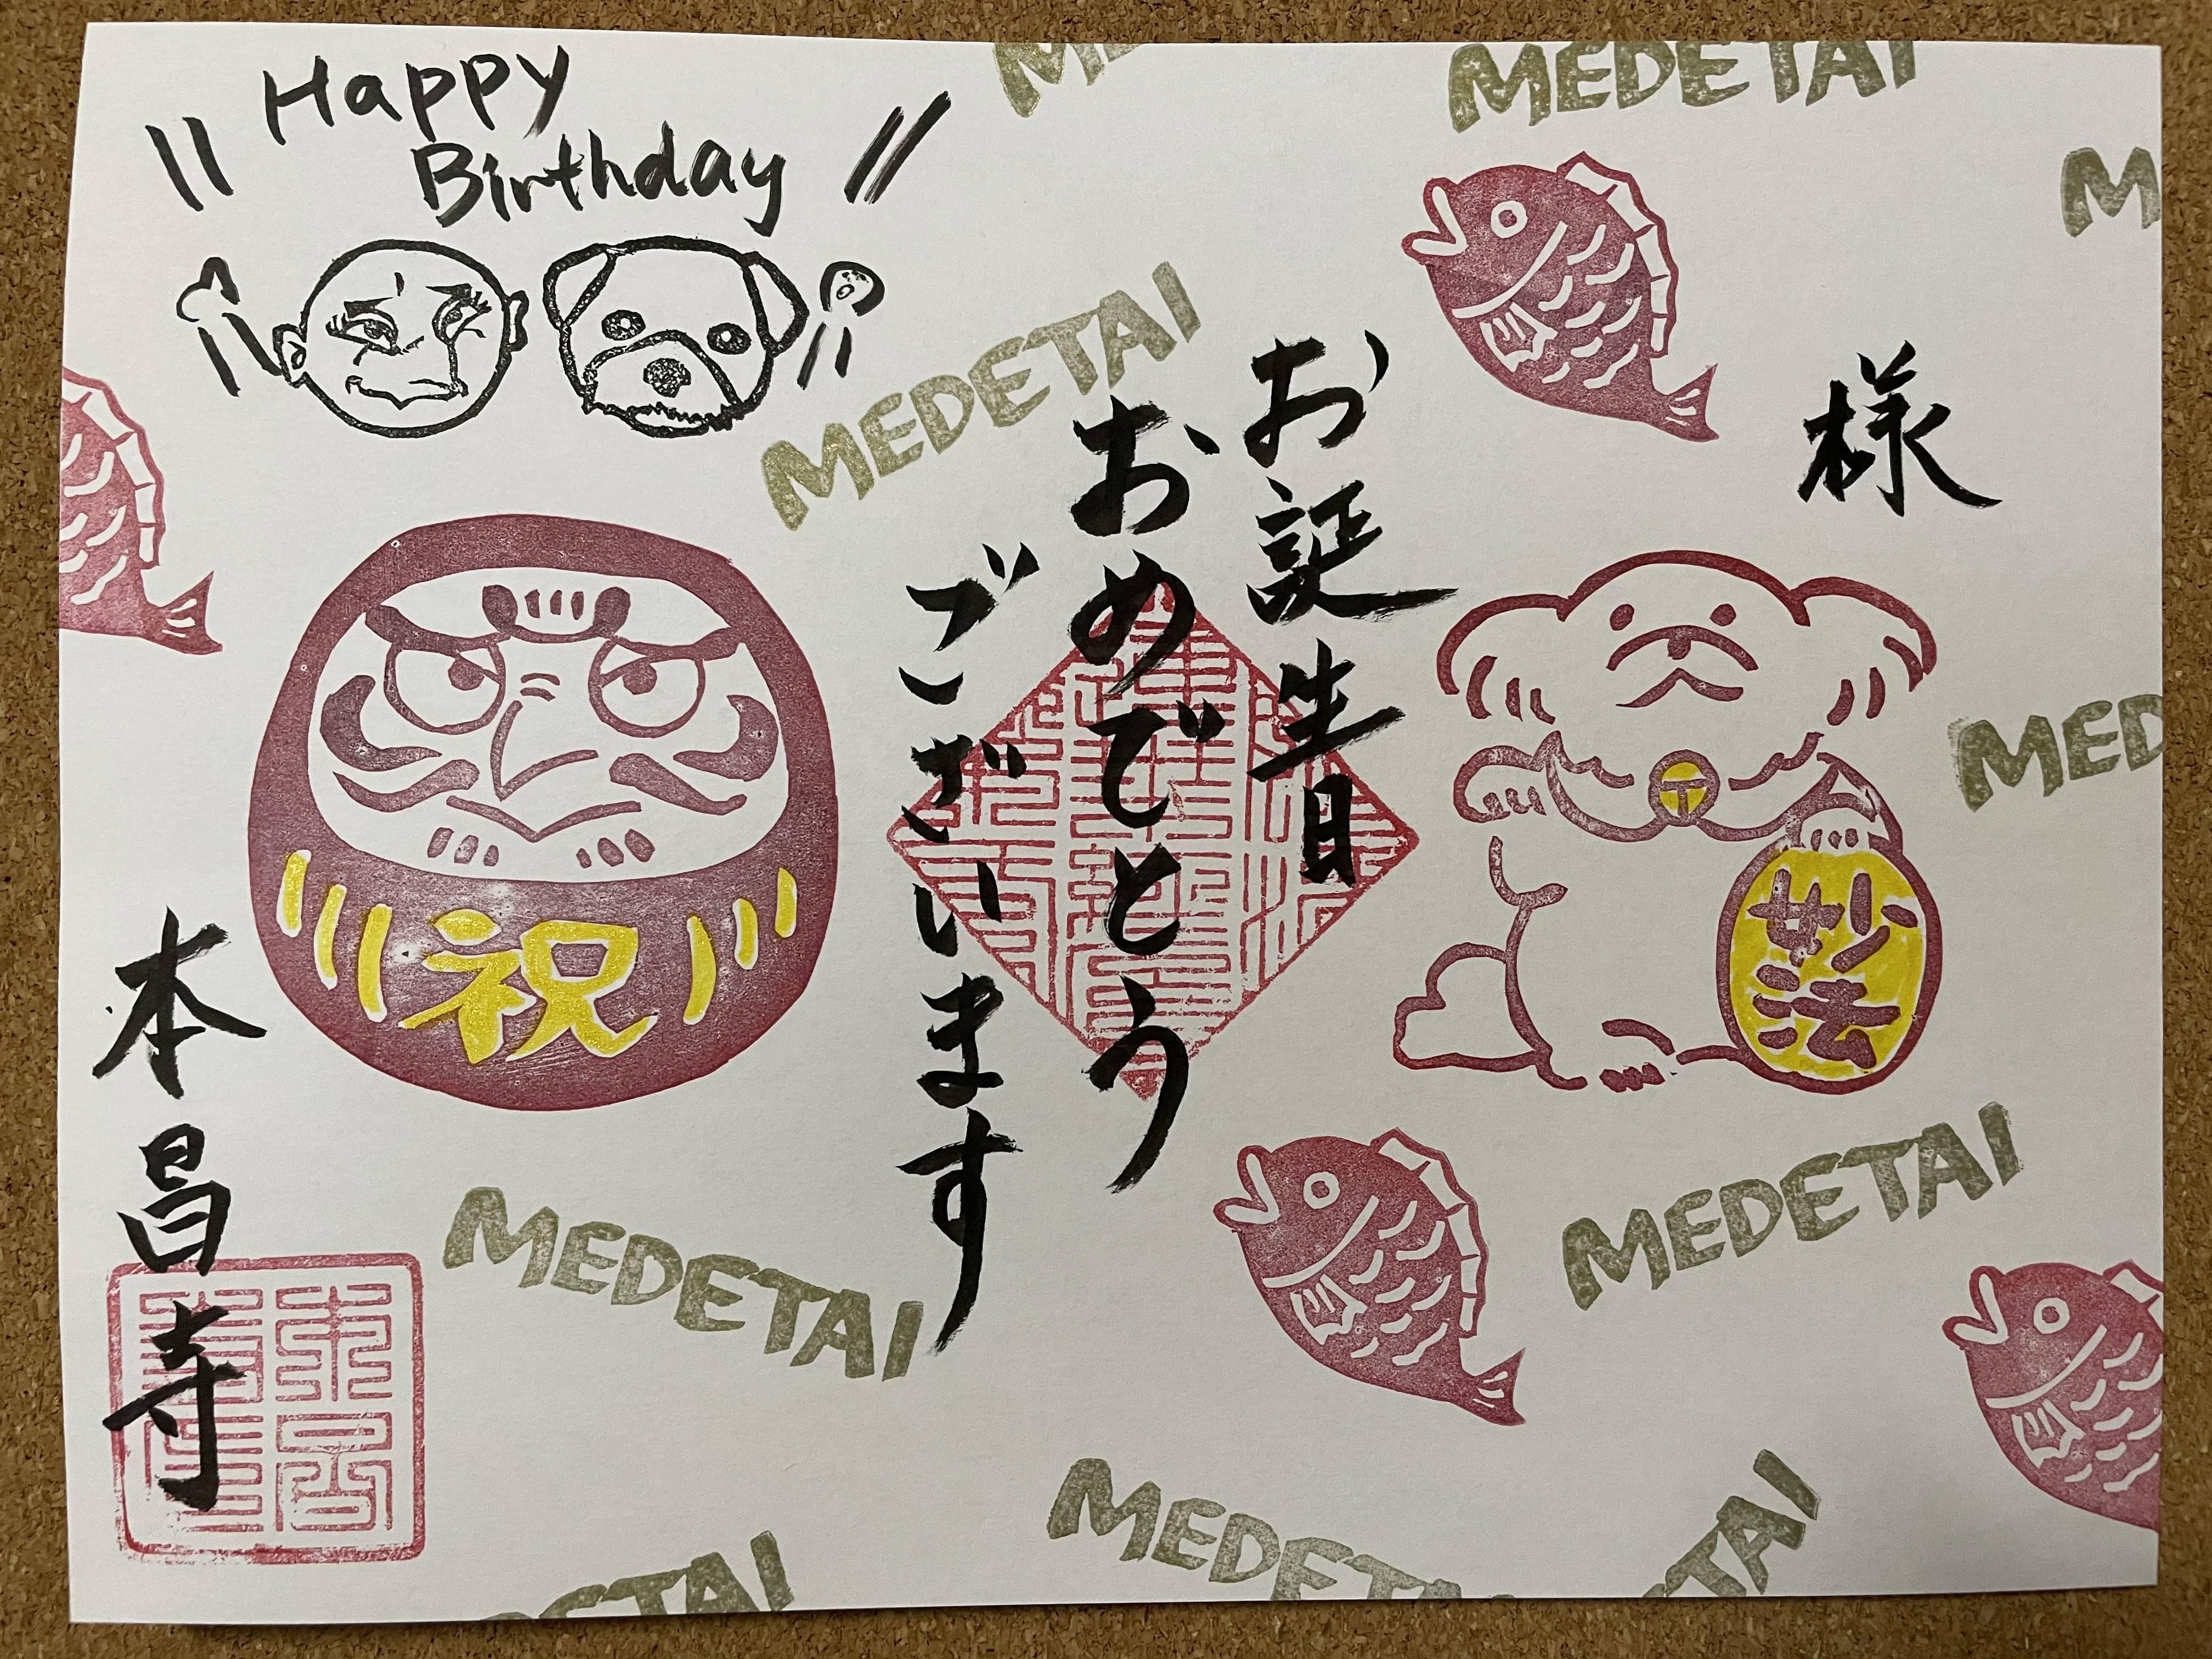 Happy
Birthday
様
お誕生日
おめでとう
ございます
本昌寺
祝
妙法
MEDETAI
MEDETAI
MEDETAI
MEDETAI
MEDETAI
M
MED
ME
MEDETA
ETAI
TAI